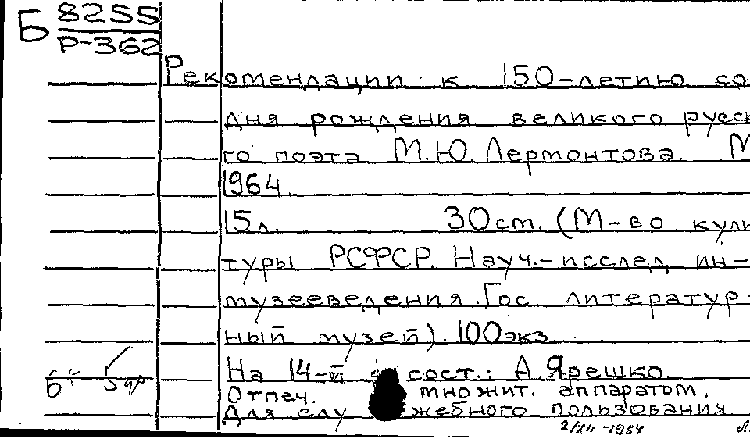 Б 8255
Р-362
Рекомендации к 150-летию со
дня рождения великого русск
го поэта М.Ю. Лермонтова. М
1964.
15л. 30см. (М-во куль
туры РСФСР. Науч.-исслед. ин-
музееведения. Гос. литератур-
ный музей). 100экз.
На 14-й сост.: А. Ярешко.
Отпеч. множит. аппаратом.
Для служебного пользования